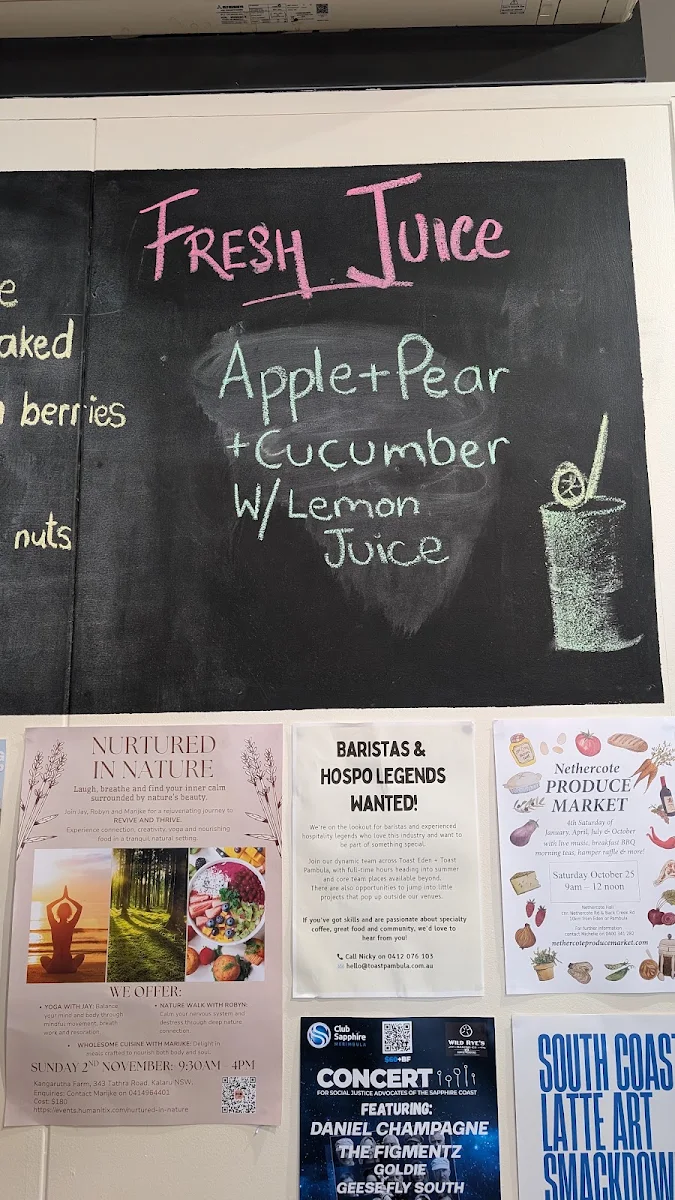 FRESH JUICE
e
aked
berries
nuts
Apple+Pear
+Cucumber
W/Lemon
Juice
NURTURED
IN NATURE
Laugh, breathe and find your inner calm
surrounded by nature's beauty.
Join Jay, Robyn and Marijke for a rejuvenating journey to
REVIVE AND THRIVE.
Experience connection, creativity, yoga and nourishing
food in a tranquil natural setting.
WE OFFER:
• YOGA WITH JAY: Balance
your mind and body through
mindful movement, breath
work and relaxation.
• NATURE WALK WITH ROBYN:
Calm your nervous system and
destress through deep nature
connection.
• WHOLESOME CUISINE WITH MARIJKE: Delight in
meals crafted to nourish both body and soul.
SUNDAY 2ND NOVEMBER: 9:30AM - 4PM
Kangarutha Farm, 343 Tathra Road, Kalaru NSW.
Enquiries: Contact Marijke on 0414964401
Cost: $180
https://events.humanitix.com/nurtured-in-nature
BARISTAS &
HOSPO LEGENDS
WANTED!
We're on the lookout for baristas and experienced
hospitality legends who love this industry and want to
be part of something special.
Join our dynamic team across Toast Eden + Toast
Pambula, with full-time hours heading into summer
and core team places available beyond.
There are also opportunities to jump into little
projects that pop up outside our venues.
If you've got skills and are passionate about specialty
coffee, great food and community, we'd love to
hear from you!
Call Nicky on 0412 076 103
hello@toastpambula.com.au
Nethercote
PRODUCE
MARKET
4th Saturday of
January, April, July & October
with live music, breakfast BBQ
morning teas, hamper raffle & more!
Saturday October 25
9am – 12 noon
Nethercote Hall
For further information
nethercoteproducemarket.com
Club
Sapphire
MERIMBULA
$60+BF
WILD RYE'S
CONCERT
FOR SOCIAL JUSTICE ADVOCATES OF THE SAPPHIRE COAST
FEATURING:
DANIEL CHAMPAGNE
THE FIGMENTZ
GOLDIE
GEESE FLY SOUTH
SOUTH COAST
LATTE ART
SMACKDOWN